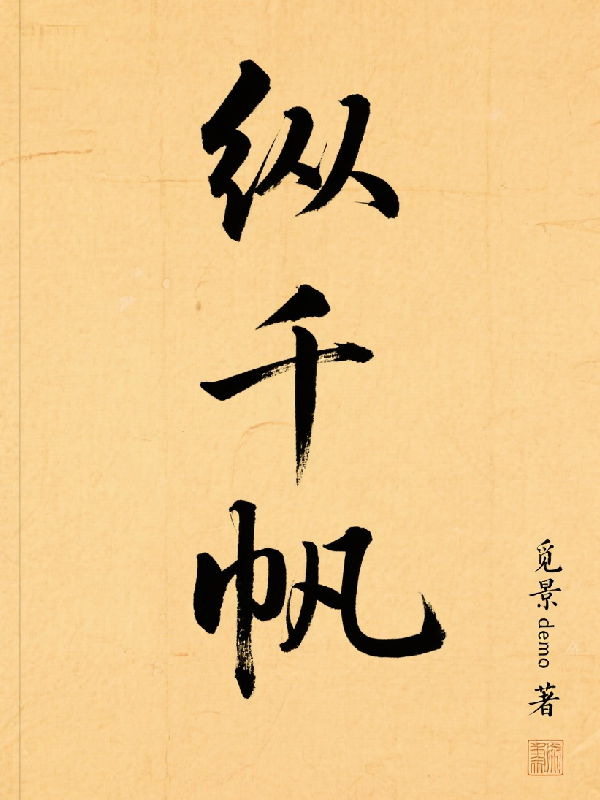 纵千帆
觅景 demo 著